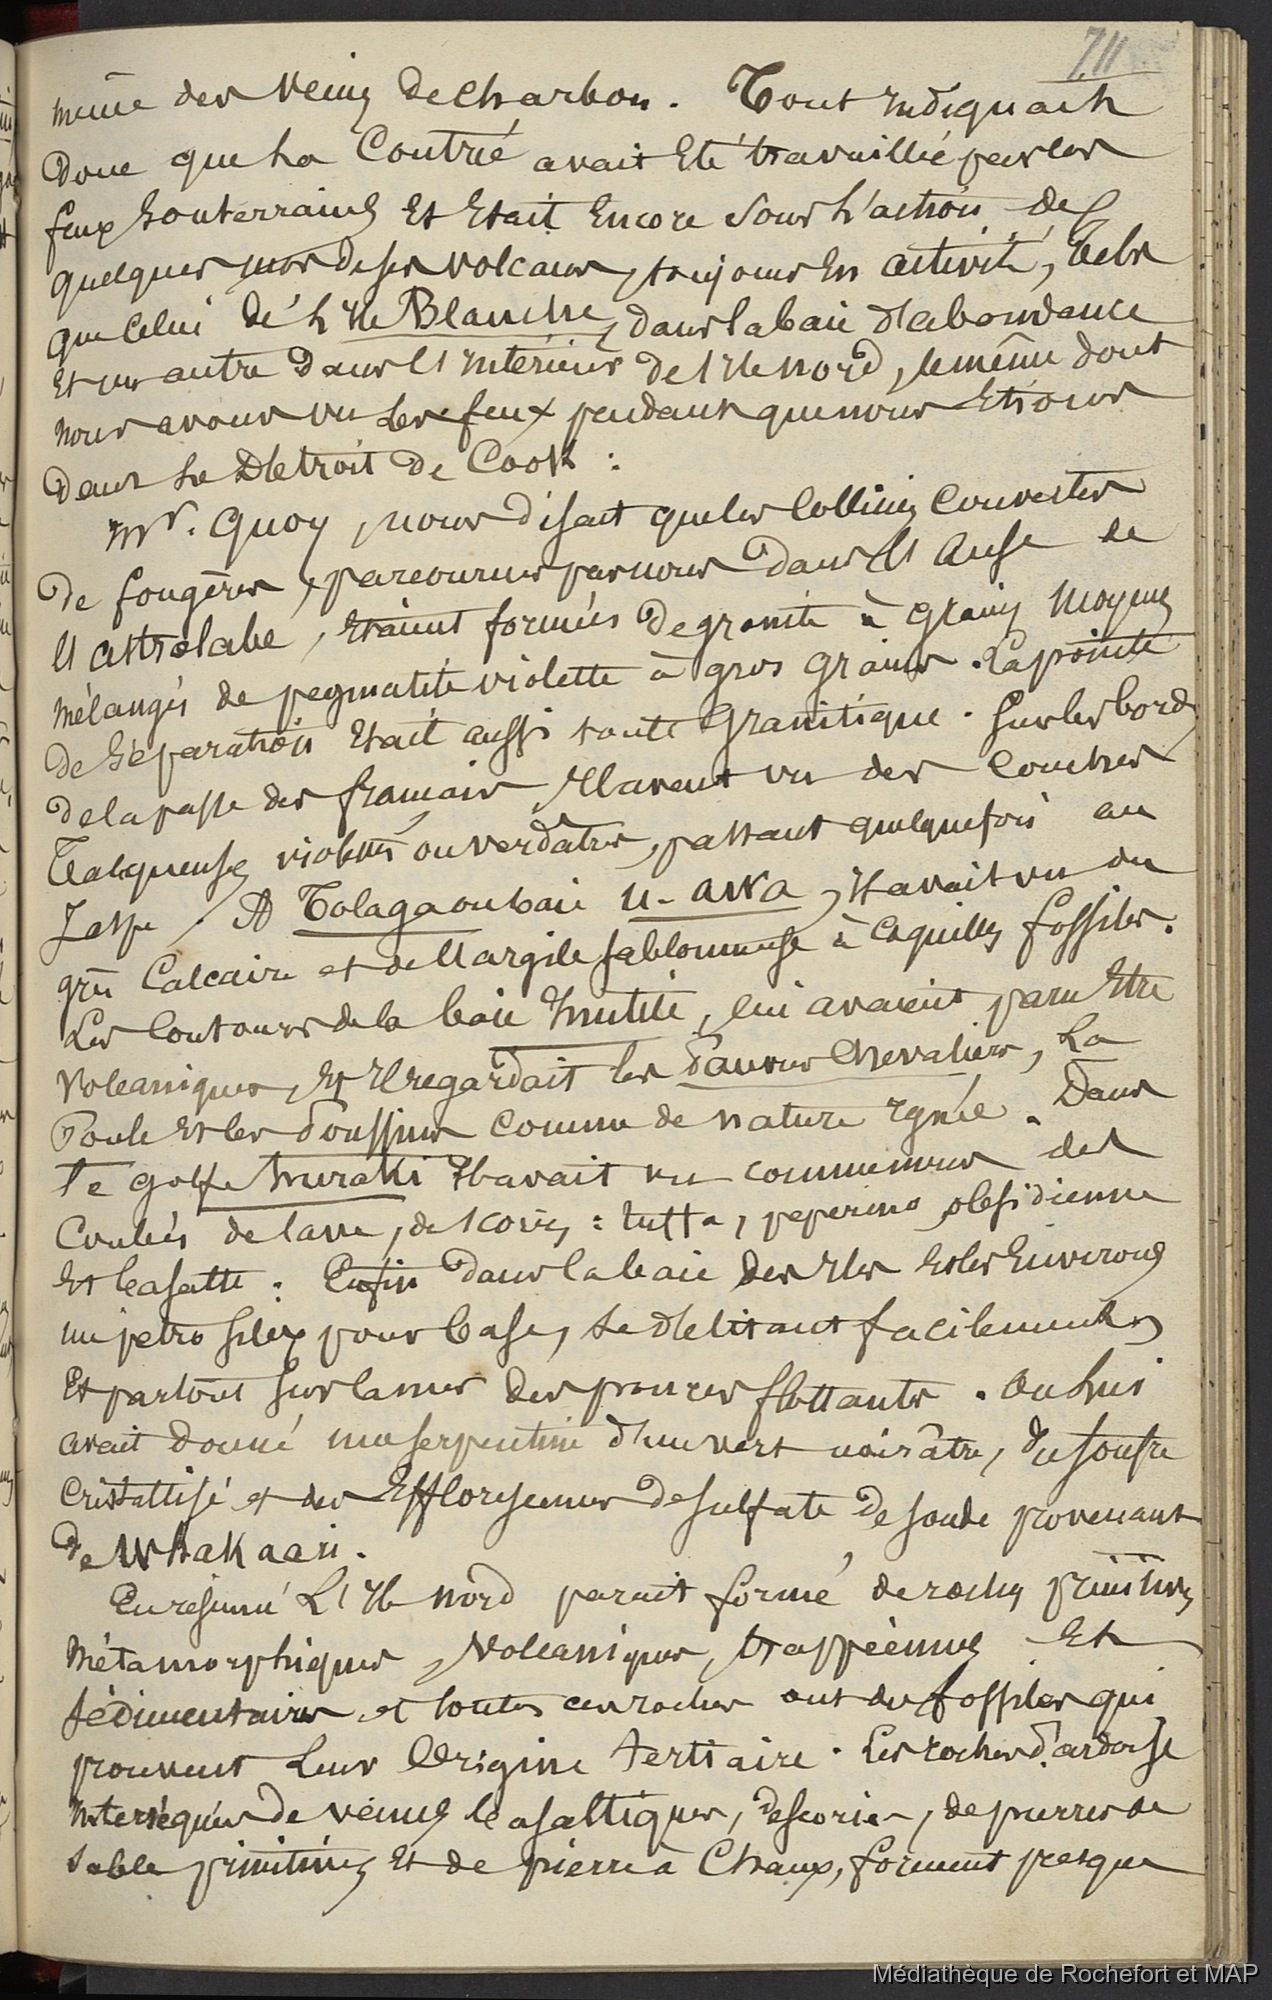 711
même des veines de charbon. Tout Indiquait
Donc que la Contrée avait Eté travaillée par les
feux Souterrains Et Etait Encore Sous L'action de
quelques uns de ses volcans, toujours En activité, tels
que Celui de L'Ile Blanche, dans la baie d'abondance
Et un autre Dans L'Intérieur De l'Ile nord, le même dont
nous avons vu Les feux pendant que nous Etions
dans Le Détroit De Cook :
Mr. Quoy, nous disait que les Collines Couvertes
De fougères, parcourues par nous Dans L'Anse de
L'Astrolabe, Etaient formées De granite à grains Moyens
Mélangés de pegmatite violette à gros grains. La pointe
De Séparation Etait aussi toute Granitique. Sur les bords
De la passe des français Il avait vu des Couches
Talqueuses violettes ou verdatres, passant quelquefois au
Jaspe. A Tolaga ou baie U-awa, Il avait vu du
grès Calcaire et de L'argile sablonneuse à Coquilles fossiles.
Les Contours de la baie Inutile, lui avaient paru Etre
Volcaniques, Et Il regardait les Pauvres Chevaliers, La
Poule Et les Poussins Comme de nature Ignée. Dans
Le golfe Houraki Il avait vu communément des
Coulées de lave, de scories : tuffa, peperino, obsidienne
Et basalte : Enfin dans la baie des Iles Et les Environs
un petro silex pour base, se délitant facilement,
Et partout Sur la mer des ponces flottantes. On Lui
avait donné une serpentine d'un vert noirâtre, du soufre
Cristallisé et des Efflorescences de sulfate De soude provenant
de Whakaari.
En résumé L'Ile Nord parait formé de roches primitives
Métamorphiques, Volcaniques, trappéennes Et
Sédimentaires et toutes ces roches ont des fossiles qui
prouvent Leur Origine tertiaire. Les roches d'ardoise
Interséquées De veines basaltiques, De scories, de pierres de
sable primitives Et de pierre à Chaux, forment presque
Médiathèque de Rochefort et MAP